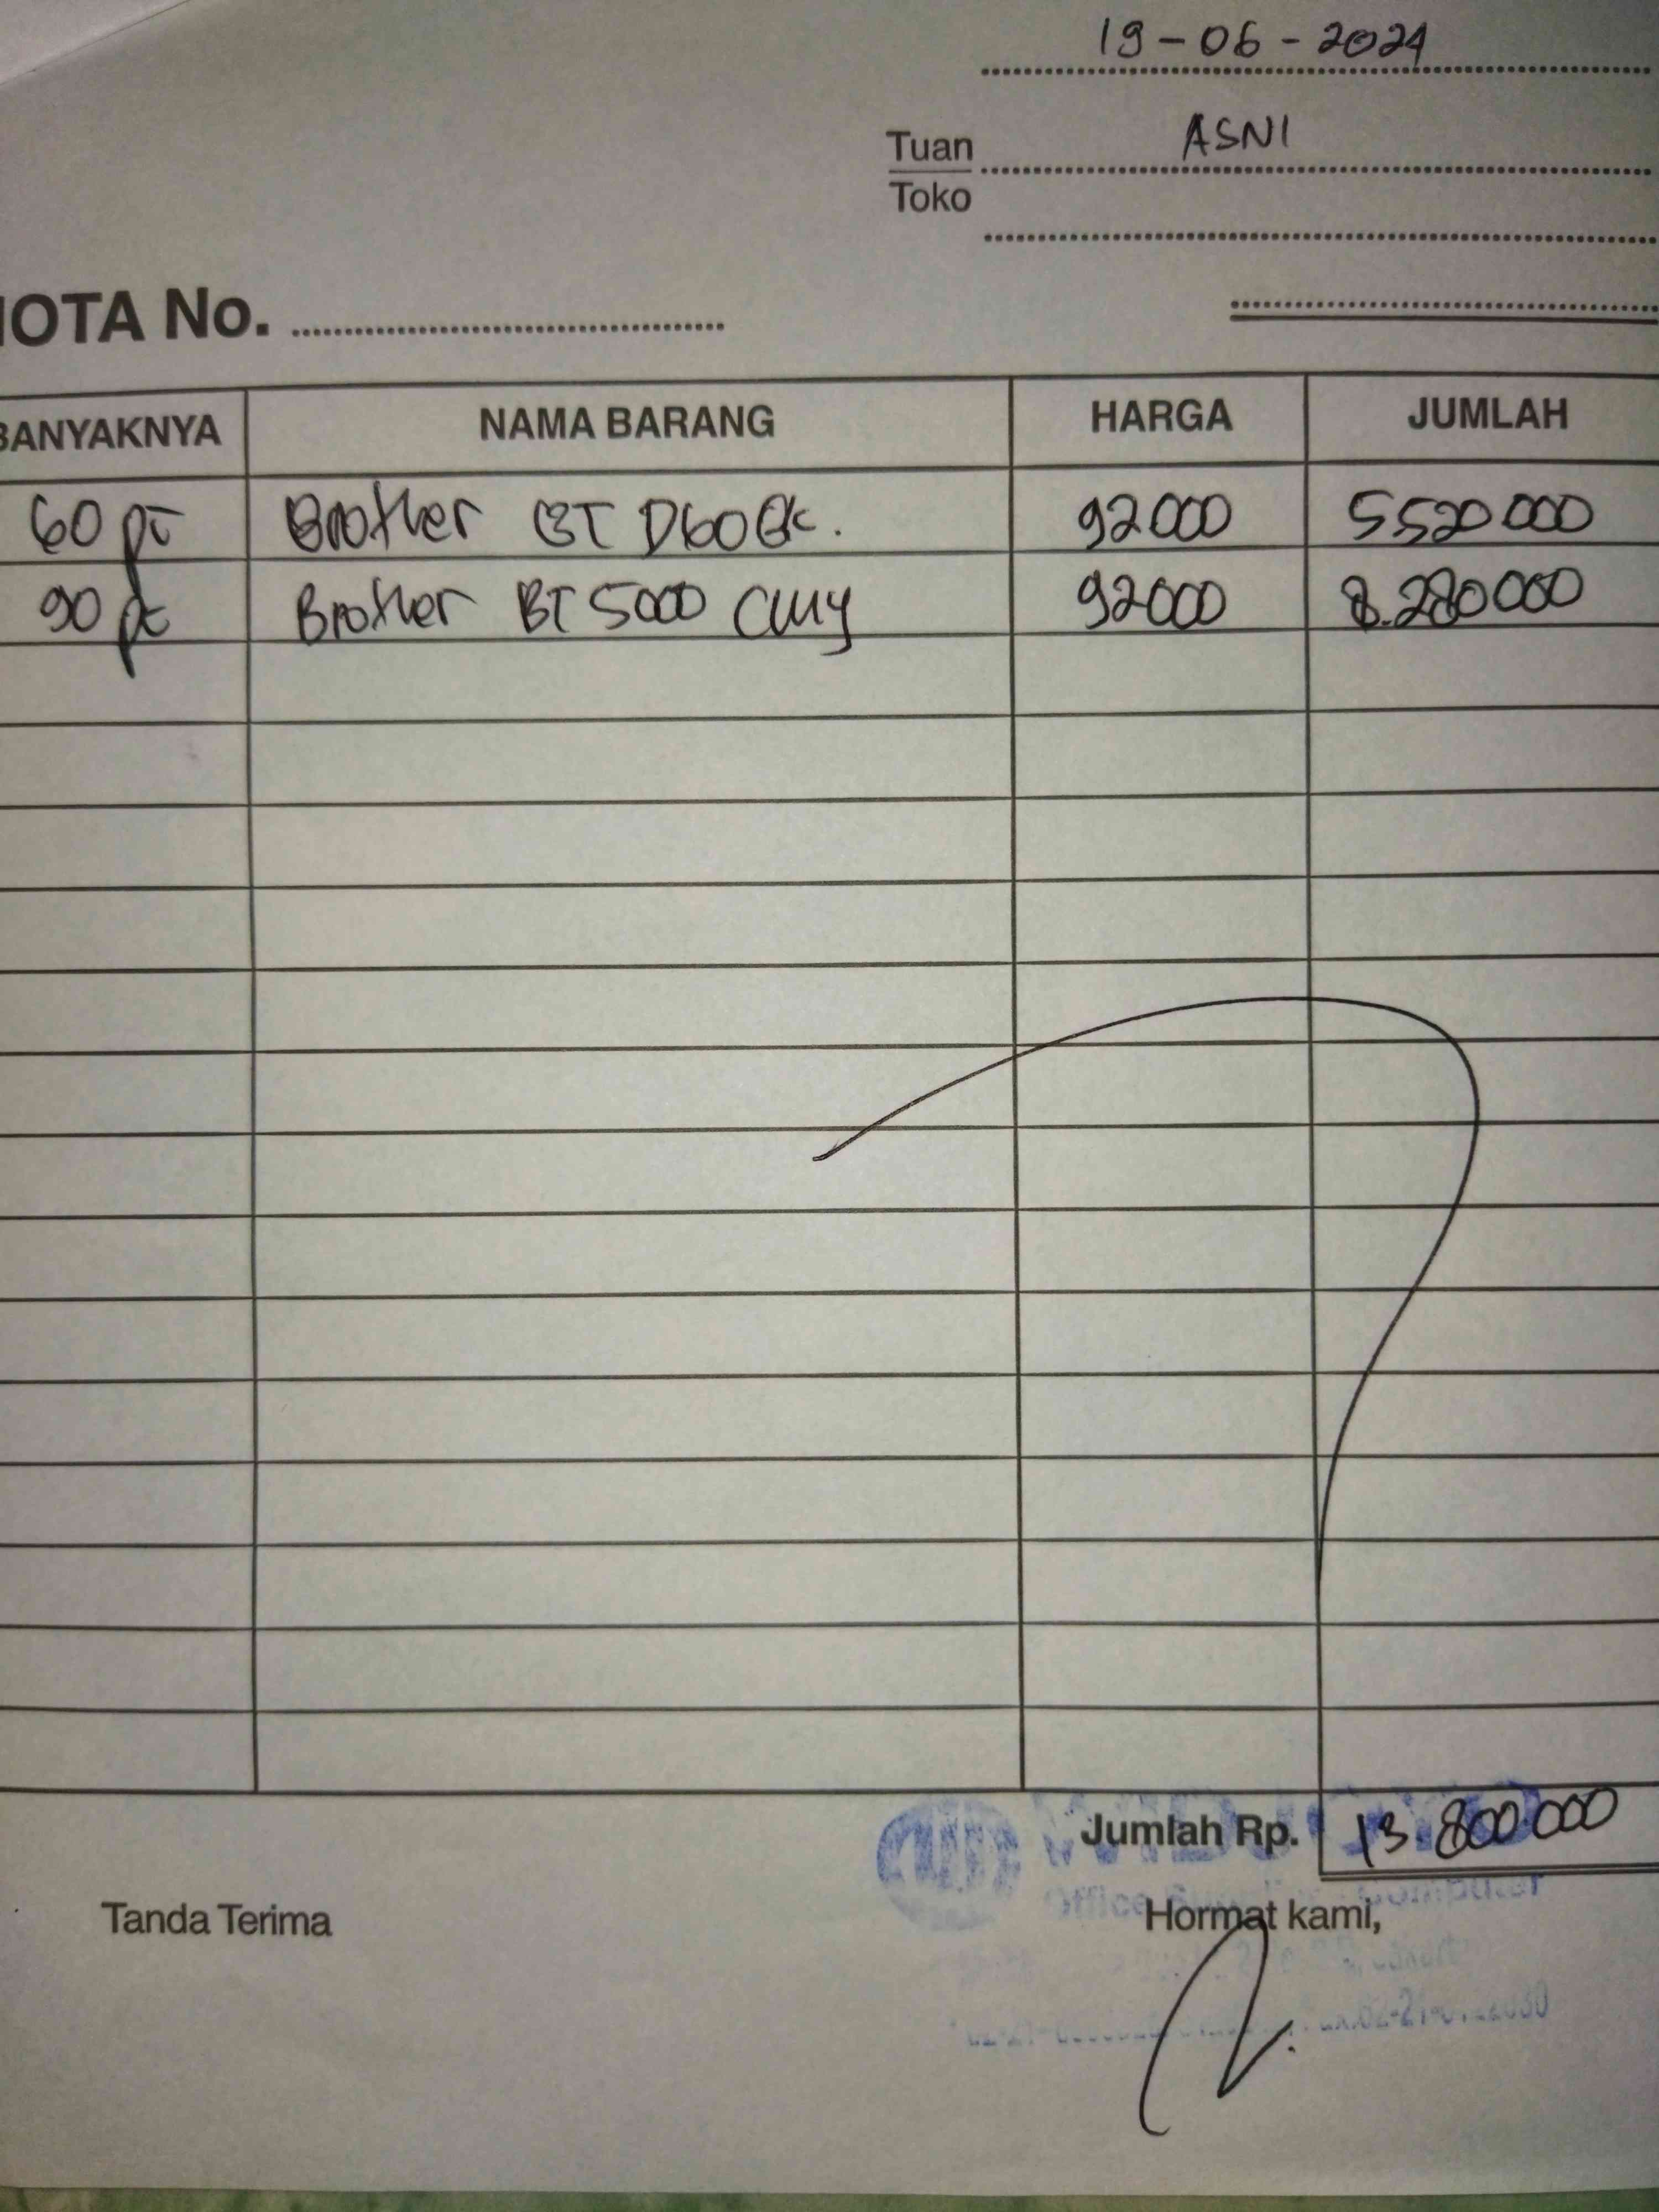 19-06-2024
Tuan ASNI
Toko
NOTA No.
BANYAKNYA NAMA BARANG HARGA JUMLAH
60 pc Brother BT D60 BK. 92000 5520000
90 pc Brother BT 5000 CMY 92000 8.280000
Jumlah Rp. 13.800.000
Office Computer
Tanda Terima Hormat kami,